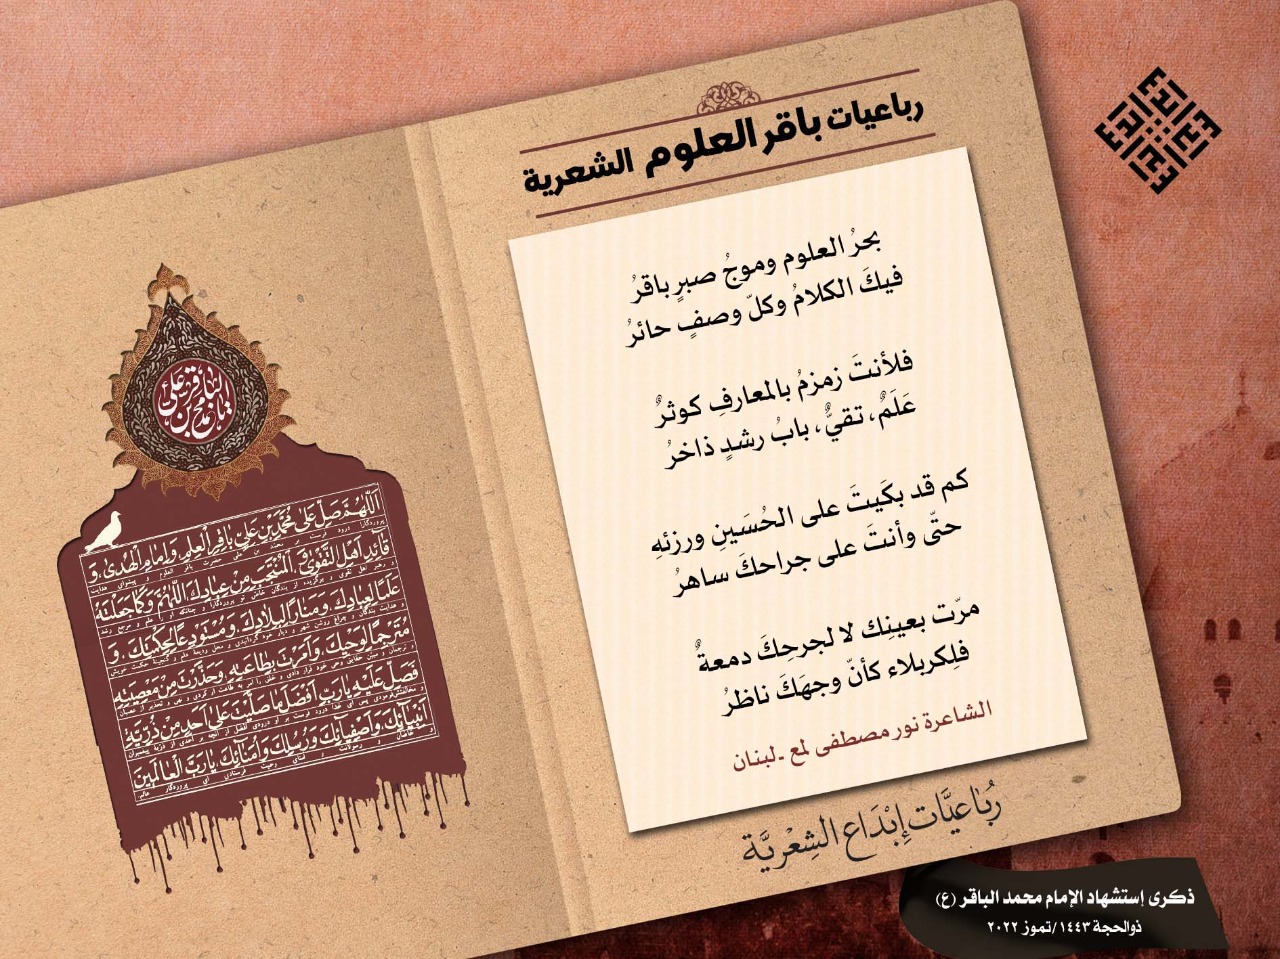 رباعيات باقر العلوم الشعرية
بحرُ العلوم وموجُ صبرٍ باقرُ
فيكَ الكلامُ وكلّ وصفٍ حائرُ
فلأنتَ زمزمُ بالمعارفِ كوثرٌ
عَلَمٌ، تقيٌّ، بابُ رشدٍ ذاخرُ
كم قد بكَيتَ على الحُسَينِ ورزئهِ
حتّى وأنتَ على جراحكَ ساهرُ
مرّت بعينِك لا لجرحِكَ دمعةٌ
فلِكربلاء كأنّ وجهَكَ ناظرُ
الشاعرة نور مصطفى لمع - لبنان
رُبَاعيَّات إِبْدَاع الشِعْريَّة
ذكرى إستشهاد الإمام محمد الباقر (ع)
ذوالحجة ١٤٤٣ /تموز ٢٠٢٢
اَللّهُمَّ صَلِّ عَلى مُحَمَّدِ بْنِ عَلِيٍّ باقِرِ الْعِلْمِ، وَإِمامِ الْهُدى، وَ
قائِدِ اَهْلِ التَّقْوى، الْمُنْتَجَبِ مِنْ عِبادِكَ اَللّهُمَّ وَكَما جَعَلْتَهُ
عَلَماً لِعِبادِكَ، وَمَناراً لِبِلادِكَ، وَمُسْتَوْدَعاً لِحِكْمَتِكَ، وَ
مُتَرْجِماً لِوَحْيِكَ، وَاَمَرْتَ بِطاعَتِهِ، وَحَذَّرْتَ مِنْ مَعْصِيَتِهِ
فَصَلِّ عَلَيْهِ يارَبِّ اَفْضَلَ ما صَلَّيْتَ عَلى اَحَدٍ مِنْ ذُرِّيَّةِ
اَنْبِيائِكَ، وَاَصْفِيائِكَ وَرُسُلِكَ وَاُمَنائِكَ يارَبَّ الْعالَمينَ